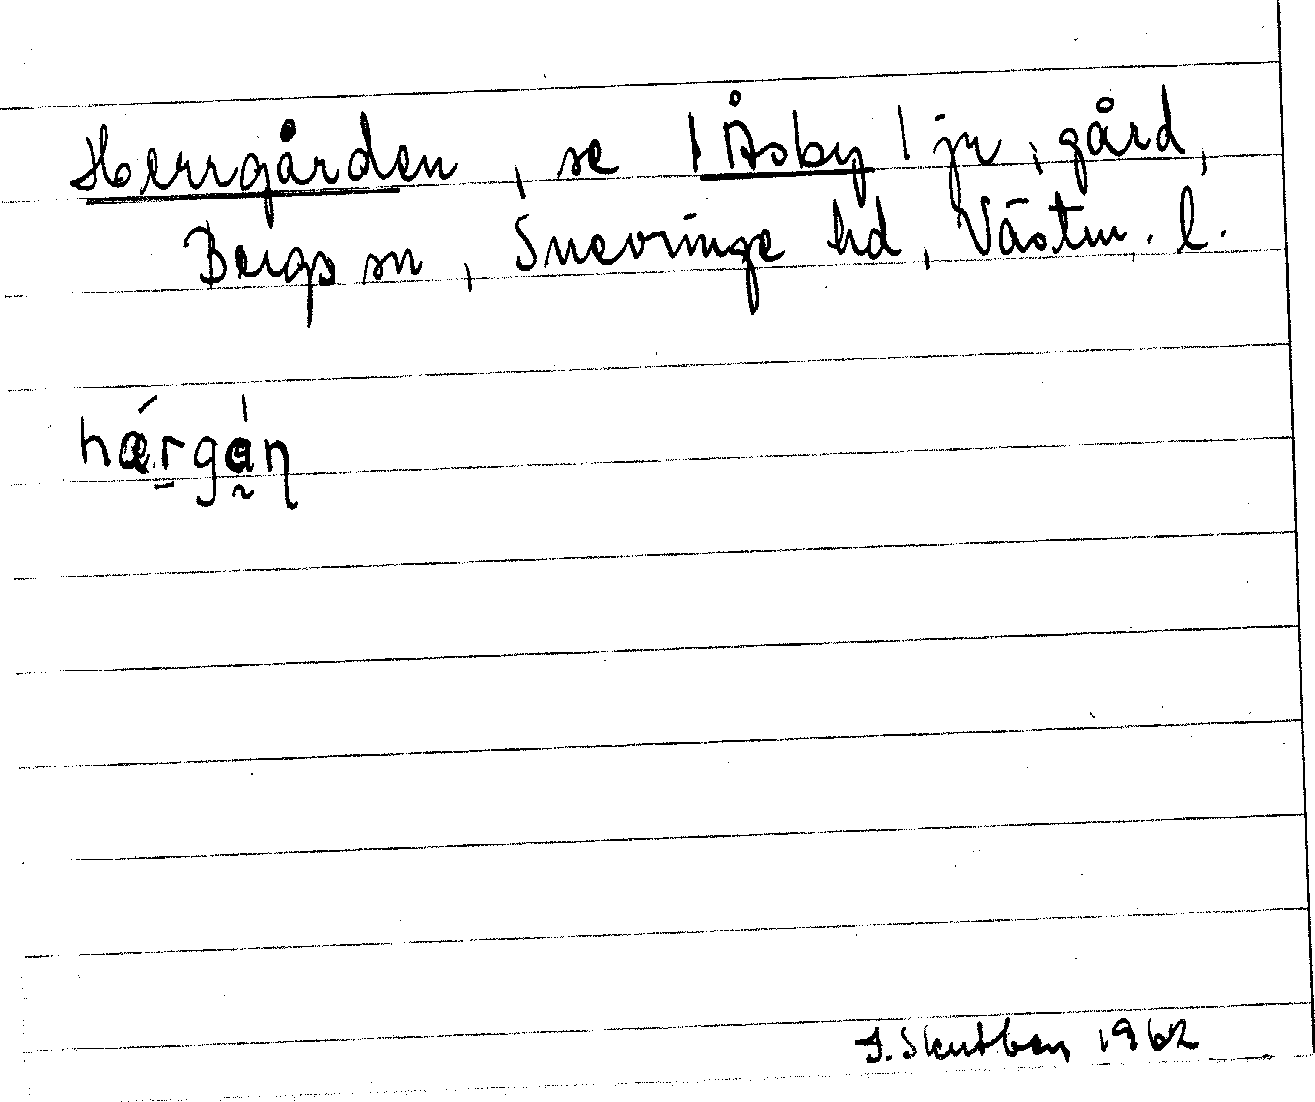 Herrgården, se | Åsby | jr, gård,
Bergs sn, Snevringe hd, Västm. l.
hǽrgán
1962